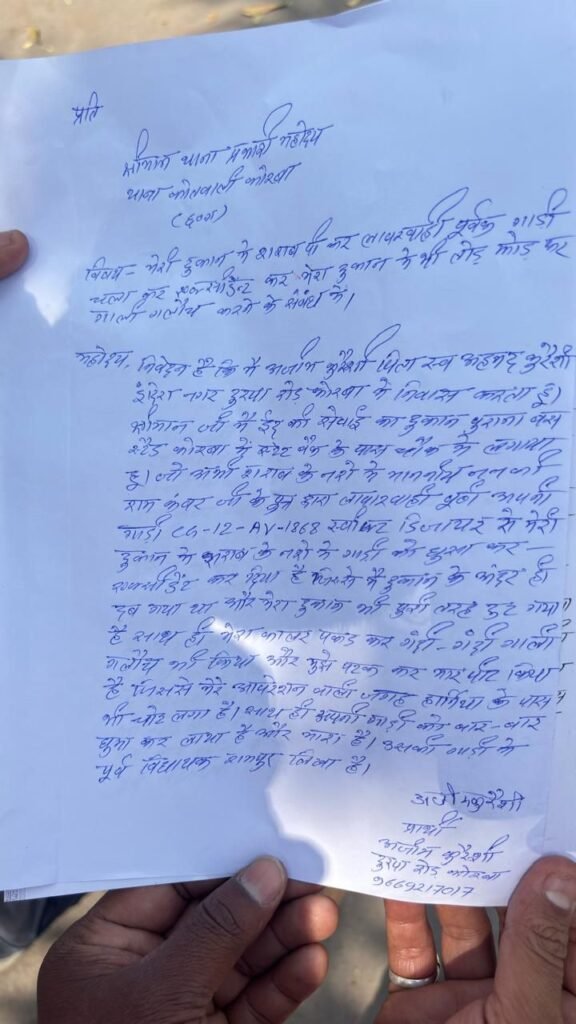 प्रति
श्रीमान थाना प्रभारी महोदय
थाना कोतवाली कोरबा
(छ०ग)
विषय- मेरी दुकान मे शराब पी कर लापरवाही पूर्वक गाडी
चला कर एक्सीडेंट कर मेरा दुकान मे भी तोड़ फोड़ कर
गाली गलौच करने के संबंध में।
महोदय, निवेदन है कि मै अजीम कुरैशी पिता स्व अहमद कुरैशी
इंदिरा नगर दुरपा रोड कोरबा मे निवास करता हू।
श्रीमान जी मै ईद की सेवाई का दुकान पुराना बस
स्टैंड कोरबा मे स्टेट बैंक के पास चौक मे लगाया
हू। जो अभी शराब के नशे मे माननीय ननकी
राम कंवर जी के पुत्र द्वारा लापरवाही पूर्वक अपनी
गाडी CG-12-AV-1368 स्वीफ्ट डिजायर से मेरी
दुकान मे शराब के नशे मे गाडी को घुसा कर
एक्सीडेंट कर दिया है जिससे मै दुकान के अंदर ही
दब गया था और मेरा दुकान भी पुरी तरह टुट गया
है साथ ही मेरा कालर पकड कर गंदी-गंदी गाली
गलौच भी किया और मुझे पटक कर मार पीट किया
है जिससे मेरे आपरेशन वाली जगह हार्निया के पास
भी चोट लगा है। साथ ही अपनी गाडी को बार-बार
घुमा कर लाया है और मारा है। उसकी गाडी मे
पूर्व विधायक रामपुर लिखा है।
अजीम कुरैशी
प्रार्थी
अजीम कुरैशी
दुरपा रोड कोरबा
9669217017